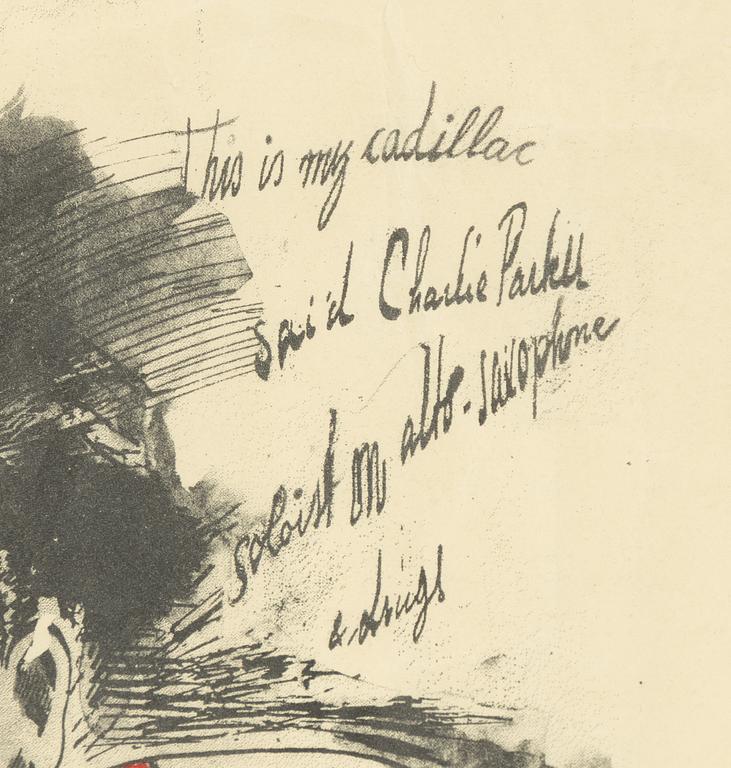 This is my cadillac
sai'd Charlie Parker
soloist on alto-saxophone
& drugs